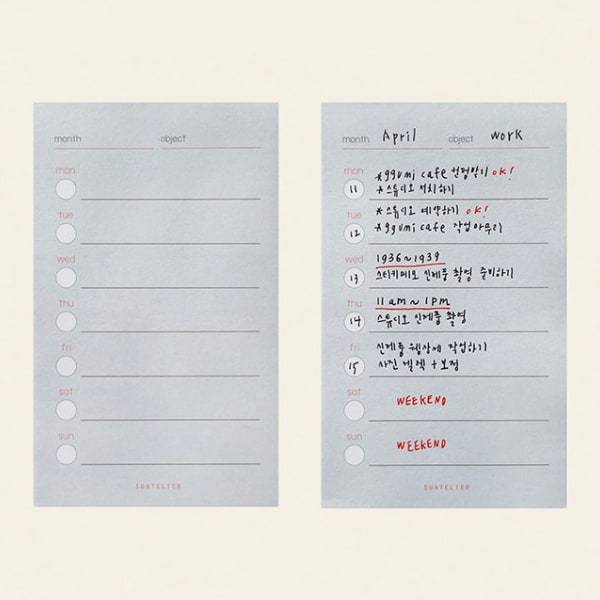 month object
mon
tue
wed
thu
fri
sat
sun
SUATELIER
month April object work
mon
11 *ggumi cafe 컨펌받기 OK!
*스튜디오 서치하기
tue
12 *스튜디오 예약하기 OK!
*ggumi cafe 작업 마무리
wed
13 1936~1939
스티키메모 신제품 촬영 준비하기
thu
14 11am~1pm
스튜디오 신제품 촬영
fri
15 신제품 웹상세 작업하기
사진 셀렉 + 보정
sat
WEEKEND
sun
WEEKEND
SUATELIER